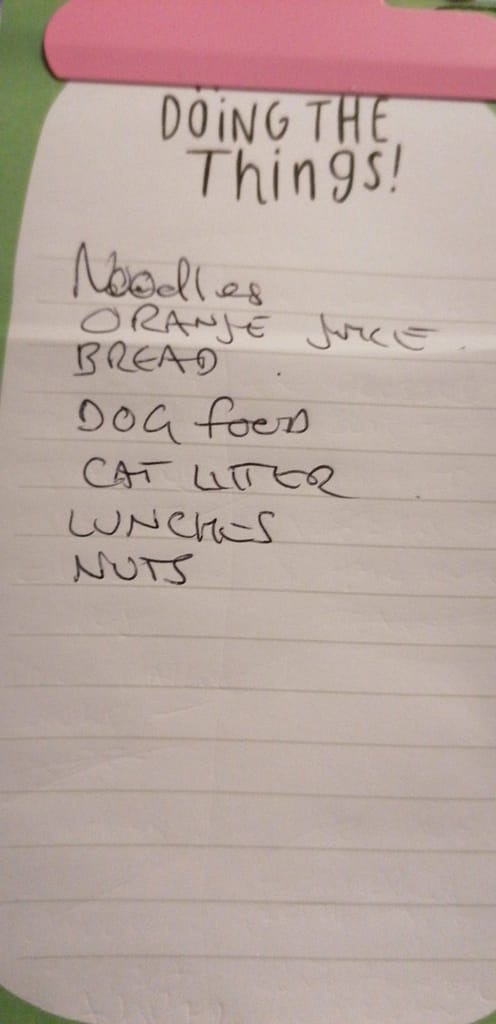 DOING THE
Things!
Noodles
ORANJE JUICE
BREAD
DOG fOOD
CAT LITTER
LUNCHES
NUTS